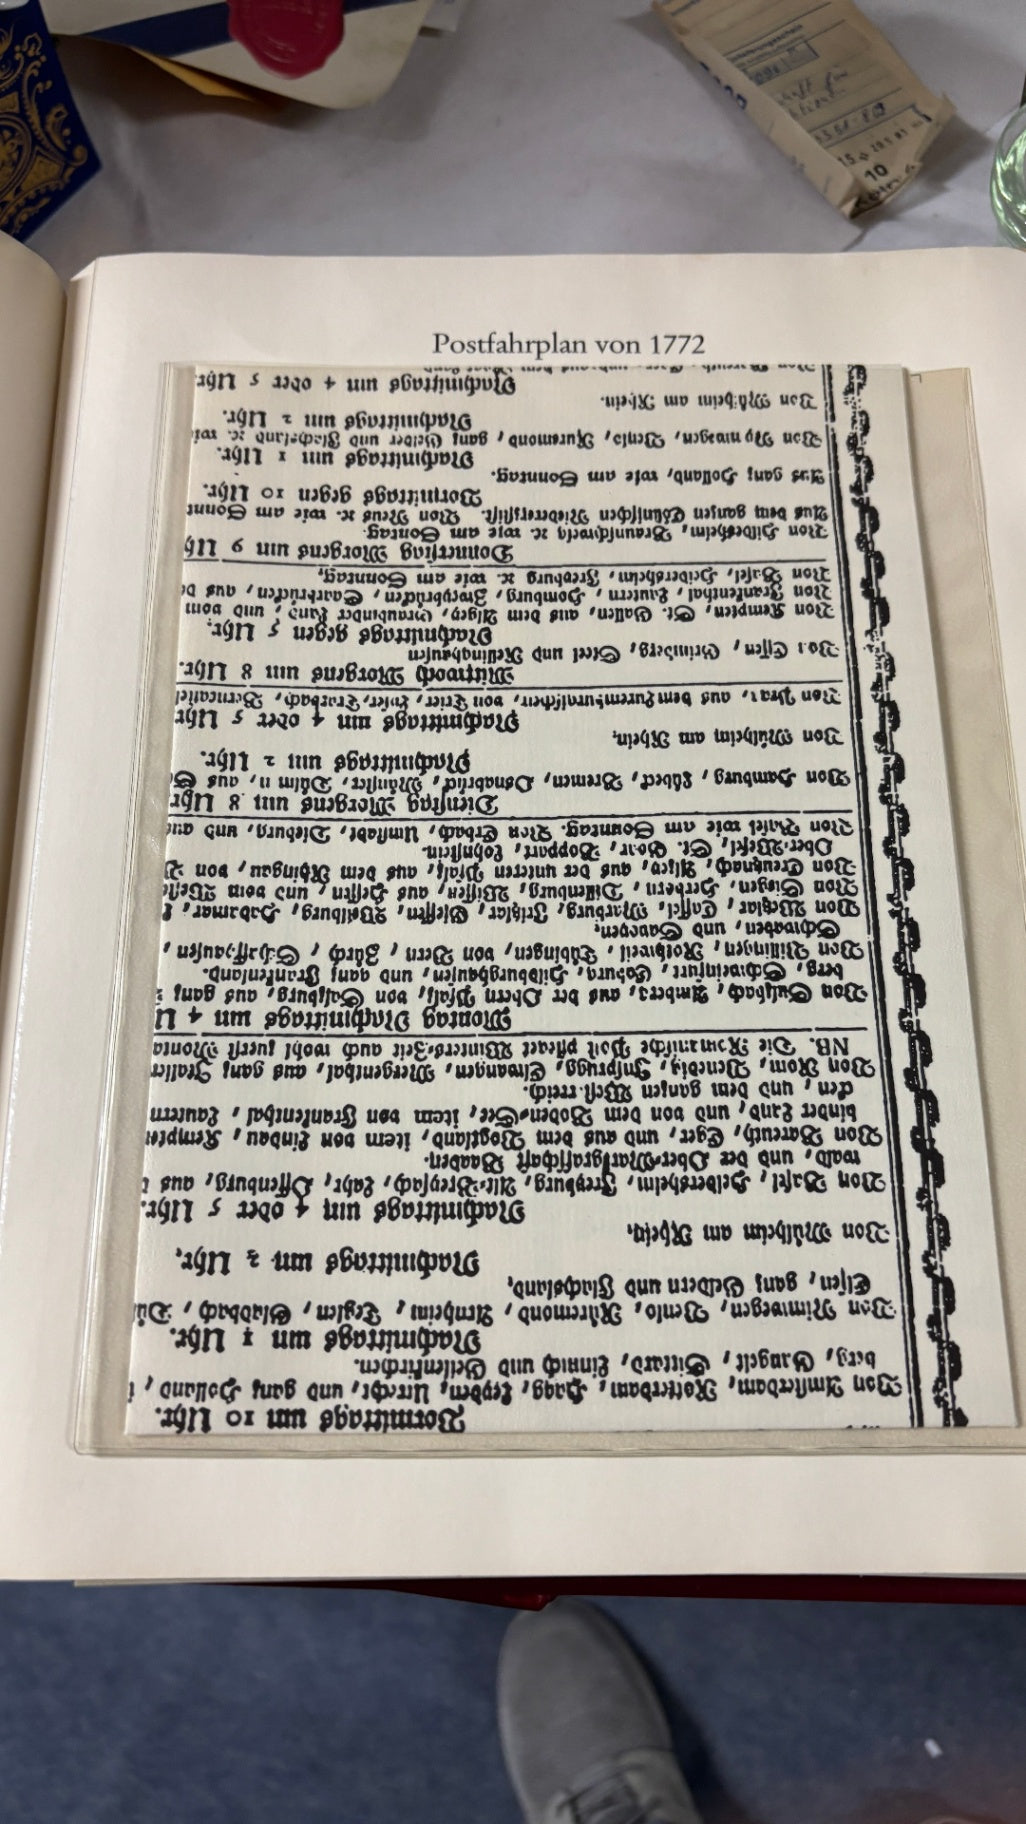 Postfahrplan von 1772
Vormittags um 10 Uhr.
Von Amsterdam, Rotterdam, Haag, Leyden, Utrecht, und ganz Holland,
berg, Gangelt, Sittard, Linnich und Geilenkirchen.
Nachmittags um 1 Uhr.
Von Nimwegen, Venlo, Rüremond, Arnheim, Tegien, Gladbach,
Elsen, ganz Geldern und Flachsland,
Nachmittags um 2 Uhr,
Von Mülheim am Rhein,
Nachmittags um 4 oder 5 Uhr.
Von Basel, Heidersheim, Freyburg, Alt-Breysach, Lahr, Offenburg, aus
wald, und der Ober-Markgraffschaft Baaden.
Von Bareuth, Eger, und aus dem Vogtland, item von Lindau, Kempten
binder Land, und von dem Boden-See, item von Frankenthal, Lautern
den, und dem ganzen
Von Rom, Venedig, Insprugg, Elwangen, Mergenthal, aus ganz Italien
NB. Die Romanische Post pfleget Winters-Zeit auch wohl zuerst Monta
Montag Nachmittags um 4 U
Von Sulzbach, Amberg, aus der Obern Pfalz, von Salzburg, aus ganz
berg, Schweinfurt, Coburg, Hildburghausen, und ganz Frankenland.
Von Villingen, Rothweil, Tübingen, von Bern, Zürch, Schaffhausen,
Schwaben, und Canoven,
Von Wetzlar, Cassel, Marburg, Fritzlar, Giessen, Weilburg, Hadamar,
Von Siegen, Herborn, Dillenburg, Wissen, aus Hessen, und vom Weste
Von Creutznach, Alzey, aus der unteren Pfalz, aus dem Rhingau, von
Ober-Wesel, St. Goar, Boppart, Lohnstein.
Von Basel wie am Sonntag. Von Erbach, Umstadt, Dieburg, und aus
Dienstag Morgens um 8 Uhr
Von Hamburg, Lübeck, Bremen, Osnabrück, Münster, Dülmen, aus
Nachmittags um 2 Uhr.
Von Mülheim am Rhein,
Nachmittags um 4 oder 5 Uhr
Von Prag, aus dem Luxemburgischen, von Trier, Luker, Trarbach, Berncastel
Mittwoch Morgens um 8 Uhr.
Von Essen, Grimberg, Steel und Reklinghausen
Nachmittags gegen 5 Uhr,
Von Kempten, St. Gallen, aus dem Algey, Graubinder Land, und vom
Von Frankenthal, Lautern, Homburg, Zweybrücken, Saarbrücken, aus
Von Basel, Heidersheim, Freyburg ꝛc. wie am Sonntag,
Donnerstag Morgens um 9 Uh
Von Hildesheim, Braunschweig ꝛc. wie am Sontag.
Aus dem ganzen Cöllnischen Niedererzstift. Von Neus ꝛc. wie am Sonnt
Vormittags gegen 10 Uhr.
Aus ganz Holland, wie am Sonntag.
Nachmittags um 1 Uhr.
Von Nymwegen, Venlo, Ruremond, ganz Gelder und Flachsland ꝛc. wie
Nachmittags um 2 Uhr.
Von Mülheim am Rhein.
Nachmittags um 4 oder 5 Uhr.